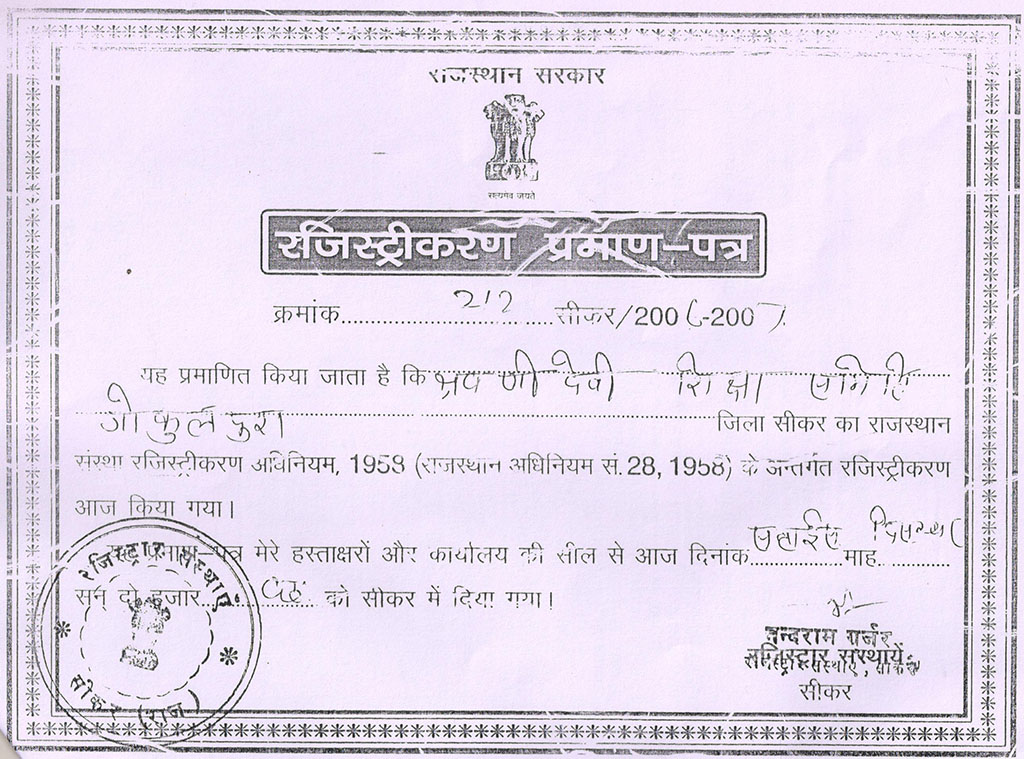 राजस्थान सरकार
सत्यमेव जयते
रजिस्ट्रीकरण प्रमाण-पत्र
क्रमांक 212 सीकर/2006-2007
यह प्रमाणित किया जाता है कि श्रवणी देवी शिक्षा समिति
गोकुलपुरा जिला सीकर का राजस्थान
संस्था रजिस्ट्रीकरण अधिनियम, 1958 (राजस्थान अधिनियम सं. 28, 1958) के अन्तर्गत रजिस्ट्रीकरण
आज किया गया।
प्रमाण-पत्र मेरे हस्ताक्षरों और कार्यालय की सील से आज दिनांक माह दिसम्बर
सन् दो हजार छः को सीकर में दिया गया।
गुर्जर
रजिस्ट्रार संस्थायें
सीकर
रजिस्ट्रार संस्थाएं
सीकर (राज.)